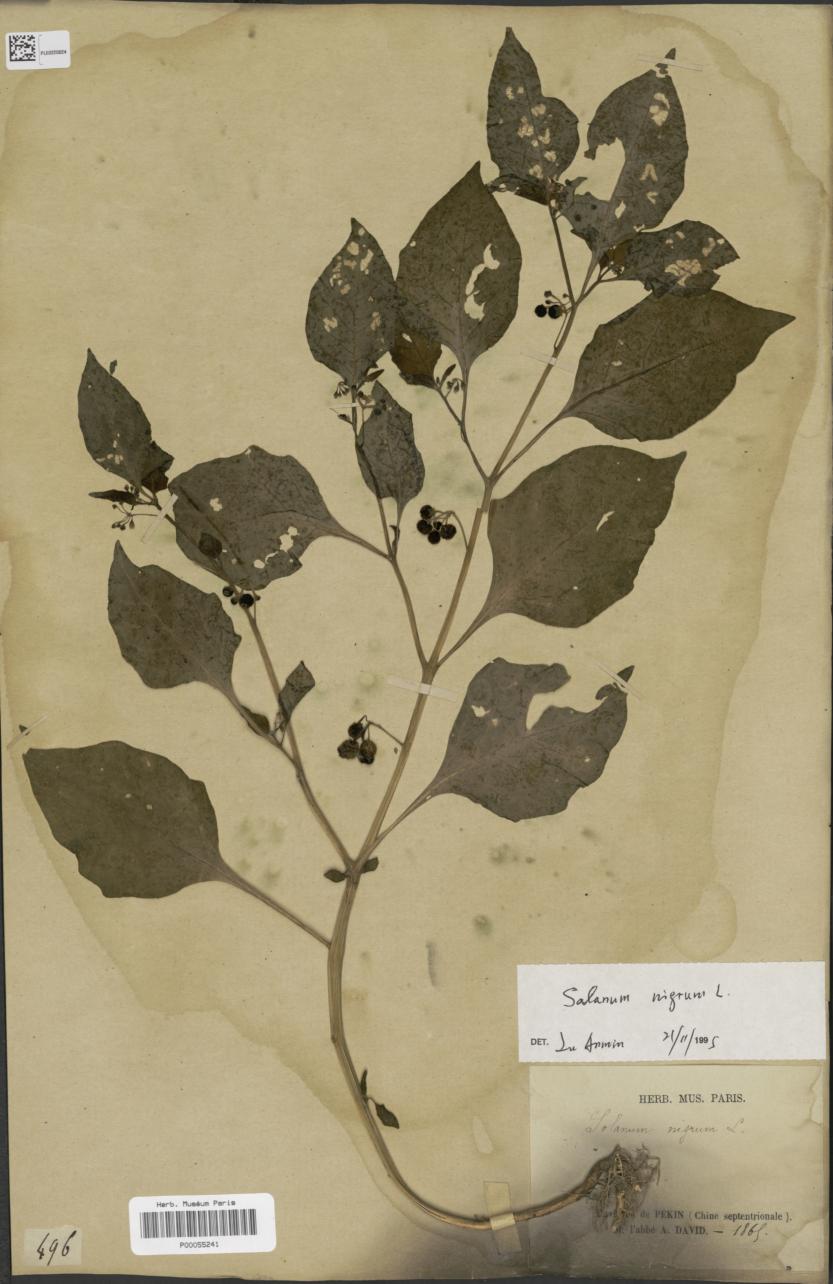 Solanum nigrum L.
DET. Lu Anmin 21/11/1995
HERB. MUS. PARIS.
Solanum nigrum L.
de PEKIN (Chine septentrionale).
l'abbé A. DAVID. — 1865.
Herb. Muséum Paris
P00055241
496